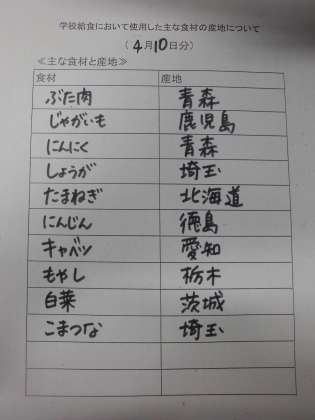 学校給食において使用した主な食材の産地について
（ 4月10日分）
≪主な食材と産地≫
食材 産地
ぶた肉 青森
じゃがいも 鹿児島
にんにく 青森
しょうが 埼玉
たまねぎ 北海道
にんじん 徳島
キャベツ 愛知
もやし 栃木
白菜 茨城
こまつな 埼玉